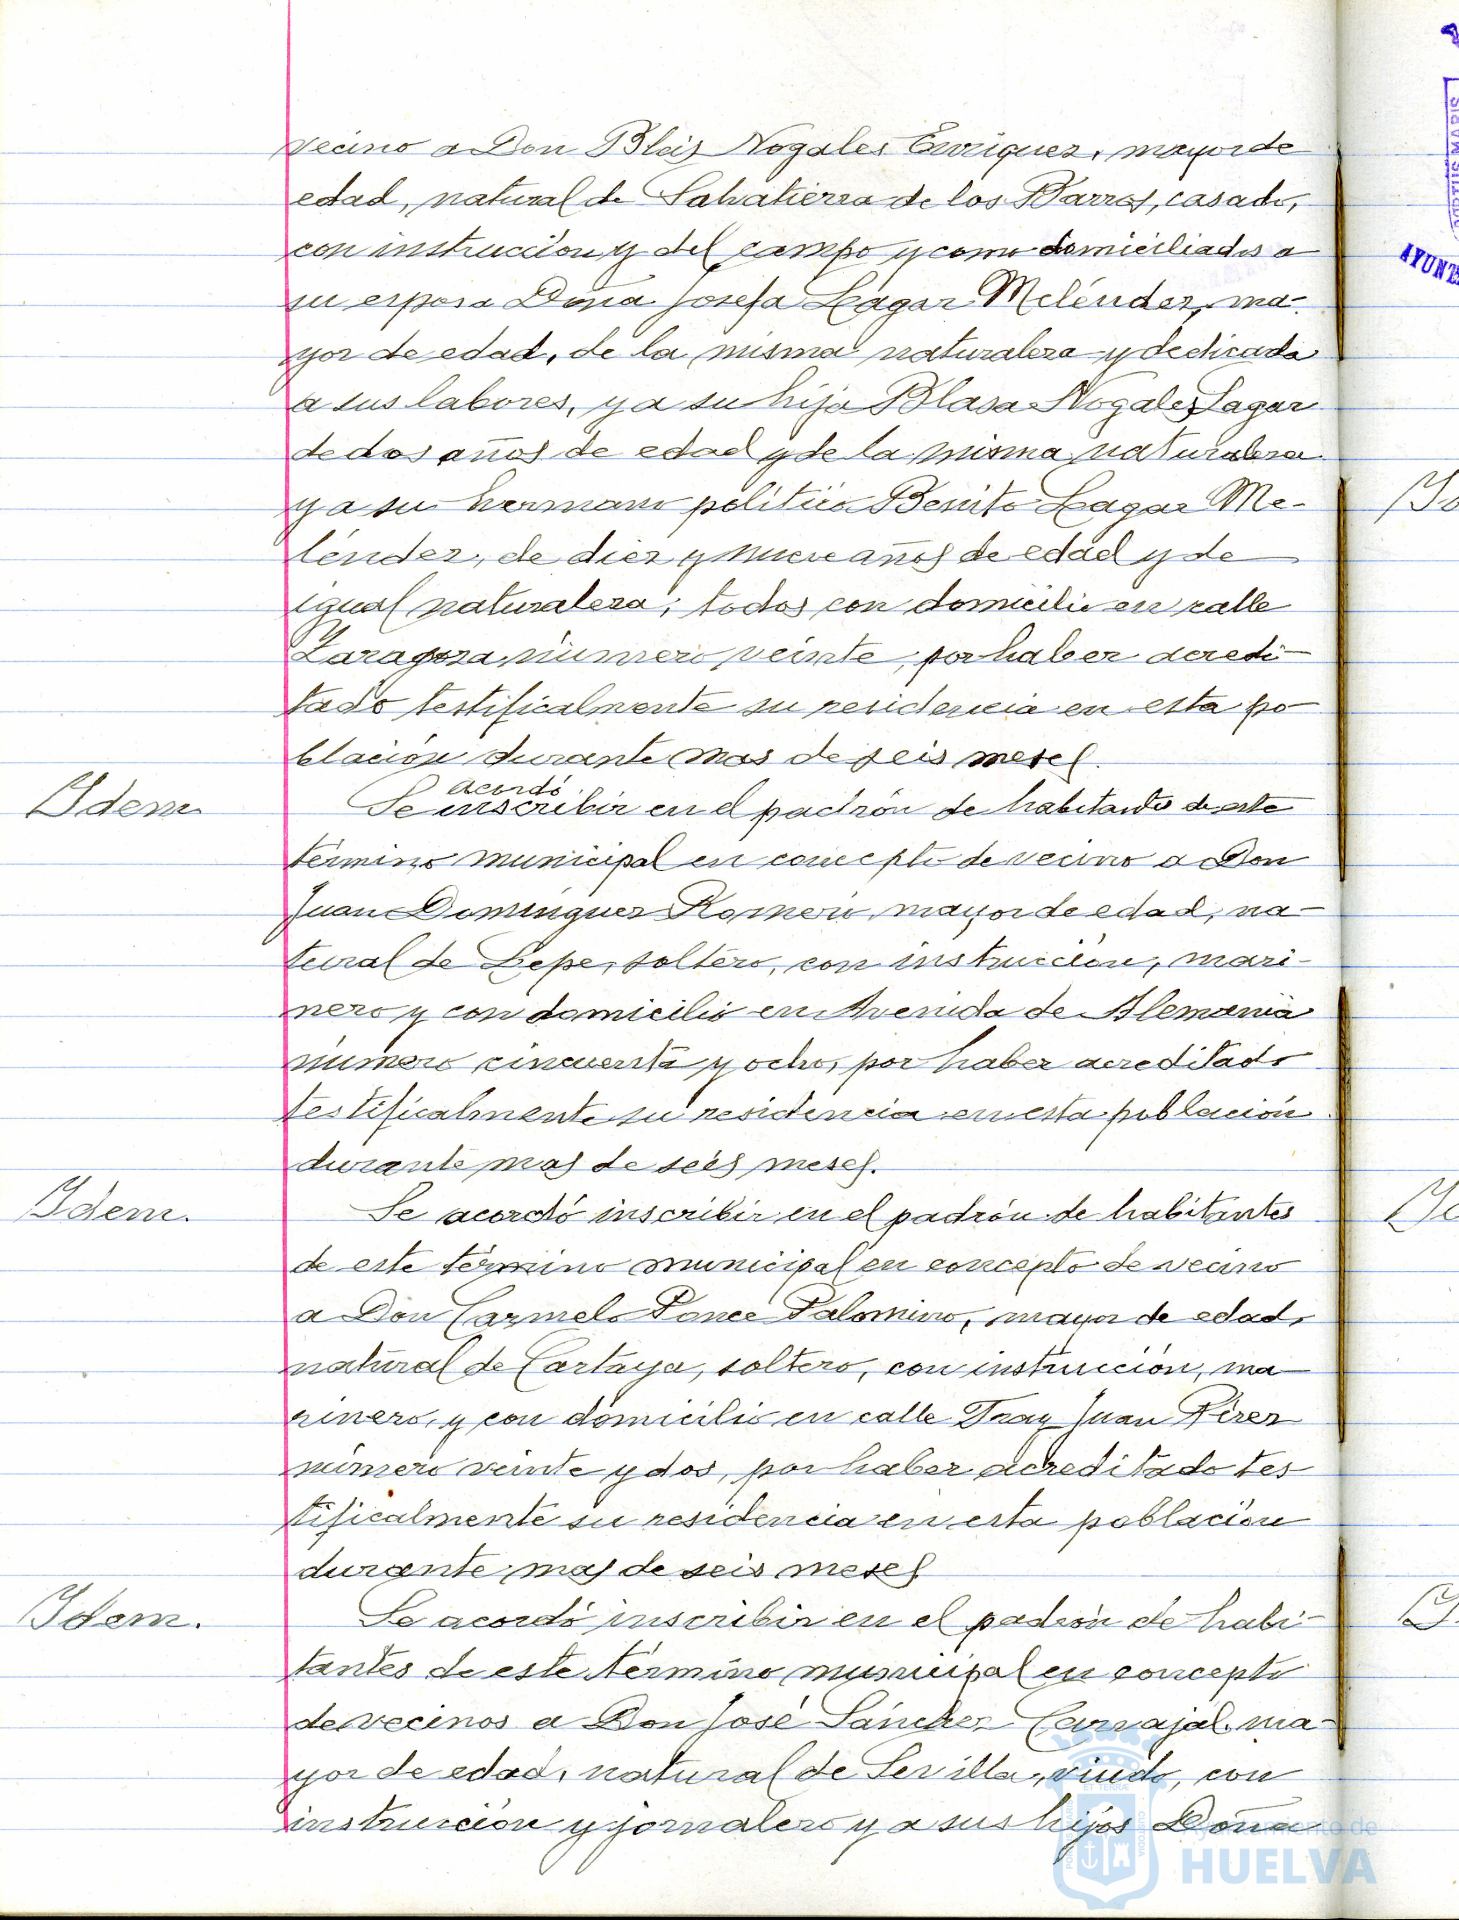 vecino a Don Blás Nogales Enriquez, mayor de
edad, natural de Salvatierra de los Barros, casado,
con instrucción y del campo y como domiciliados a
su esposa Doña Josefa Lagar Meléndez, ma-
yor de edad, de la misma naturaleza y dedicada
a sus labores, y a su hija Blasa Nogales Lagar
de dos años de edad y de la misma naturaleza
y a su hermano politico Benito Lagar Me-
léndez, de diez y nueve años de edad y de
igual naturaleza; todos con domicilio en calle
Zaragoza, número veinte, por haber acredi-
tado testificalmente su residencia en esta po-
blación durante mas de seis meses.
Idem.
acordó
Se inscribir en el padrón de habitantes de este
término municipal en concepto de vecino a Don
Juan Dominguez Romero, mayor de edad, na-
tural de Lepe, soltero, con instrucción, mari-
nero y con domicilio en Avenida de Alemania
número cincuenta y ocho, por haber acreditado
testificalmente su residencia en esta población
durante mas de seis meses.
Idem.
Se acordó inscribir en el padrón de habitantes
de este término municipal en concepto de vecino
a Don Carmelo Ponce Palomino, mayor de edad,
natural de Cartaya, soltero, con instrucción, ma-
rinero, y con domicilio en calle Fray Juan Pérez
número veinte y dos, por haber acreditado tes-
tificalmente su residencia en esta población
durante mas de seis meses
Idem.
Se acordó inscribir en el padrón de habi-
tantes de este término municipal en concepto
de vecinos a Don José Sánchez Carvajal, ma-
yor de edad, natural de Sevilla, viudo, con
instrucción y jornalero y a sus hijos Doña
Ayuntamiento de
HUELVA